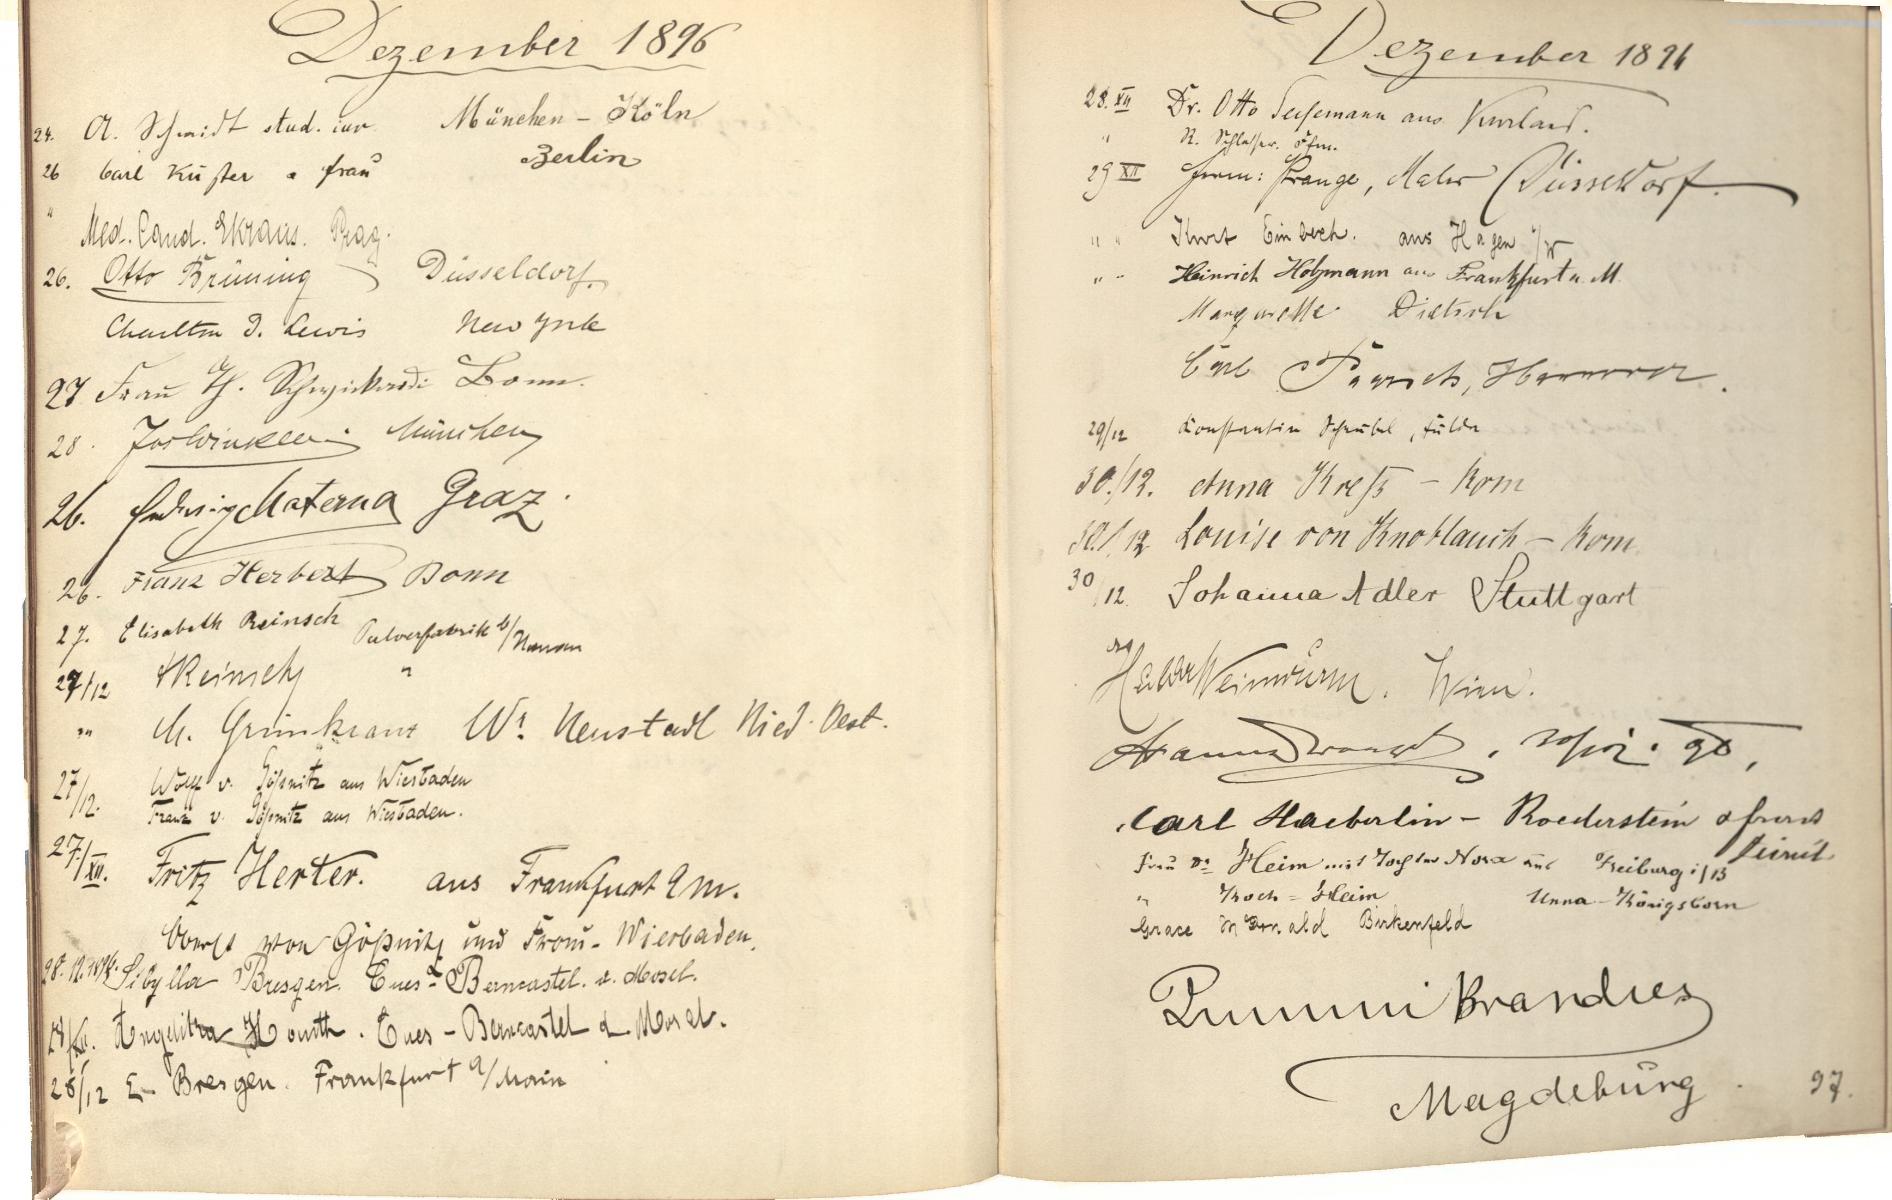 Dezember 1896
24. A. Schmidt stud. iur. München - Köln
26 Carl Küster u frau Berlin
" Med. Cand. Ekraus. Prag.
26. Otto Brüning Düsseldorf.
Charlton T. Lewis New York
27 Frau Th. Bonn.
28. München
26. Ludwig Materna Graz.
26. Franz Herbert Bonn
27. Elisabeth Reinsch Pulverfabrik b/Hanau
27/12 Reinsch "
" M. Grünkranz Wr. Neustadt Nied. Oest.
27/12. Wolf v. Gößnitz aus Wiesbaden
Franz v. Gößnitz aus Wiesbaden.
27./XII. Fritz Herter. aus Frankfurt a m.
Oberst von Gößnitz und Frau - Wiesbaden.
28.12.1896. Sibylla Bresgen. Cues-Berncastel. a. Mosel.
28/XII. Angelika Honth. Cues - Berncastel a. Mosel.
28/12 E. Bresgen. Frankfurt a/Main
Dezember 1896
28. XII Dr. Otto Seesemann aus Kurland.
" R. Schlosser.
29 XII Herm: Prange, Maler Düsseldorf.
" " Kurt Einbeck. aus Hagen i/W
" " Heinrich Holzmann aus Frankfurt a. M.
Margarethe Dietsch
Carl Hannover.
29/12 Konstantin Scheubel, Fulda
30./12. Anna Kreß - Rom
30./12 Louise von Knoblauch - Rom
30/12. Johanna Adler Stuttgart
Weinwurm. Wien.
Carl Haeberlin - Roederstein
Frau Dr Heim mit Tochter Nora aus Freiburg i/B
" Koch = Heim Unna - Königsborn
Grace Birkenfeld
Brandes
Magdeburg
97.